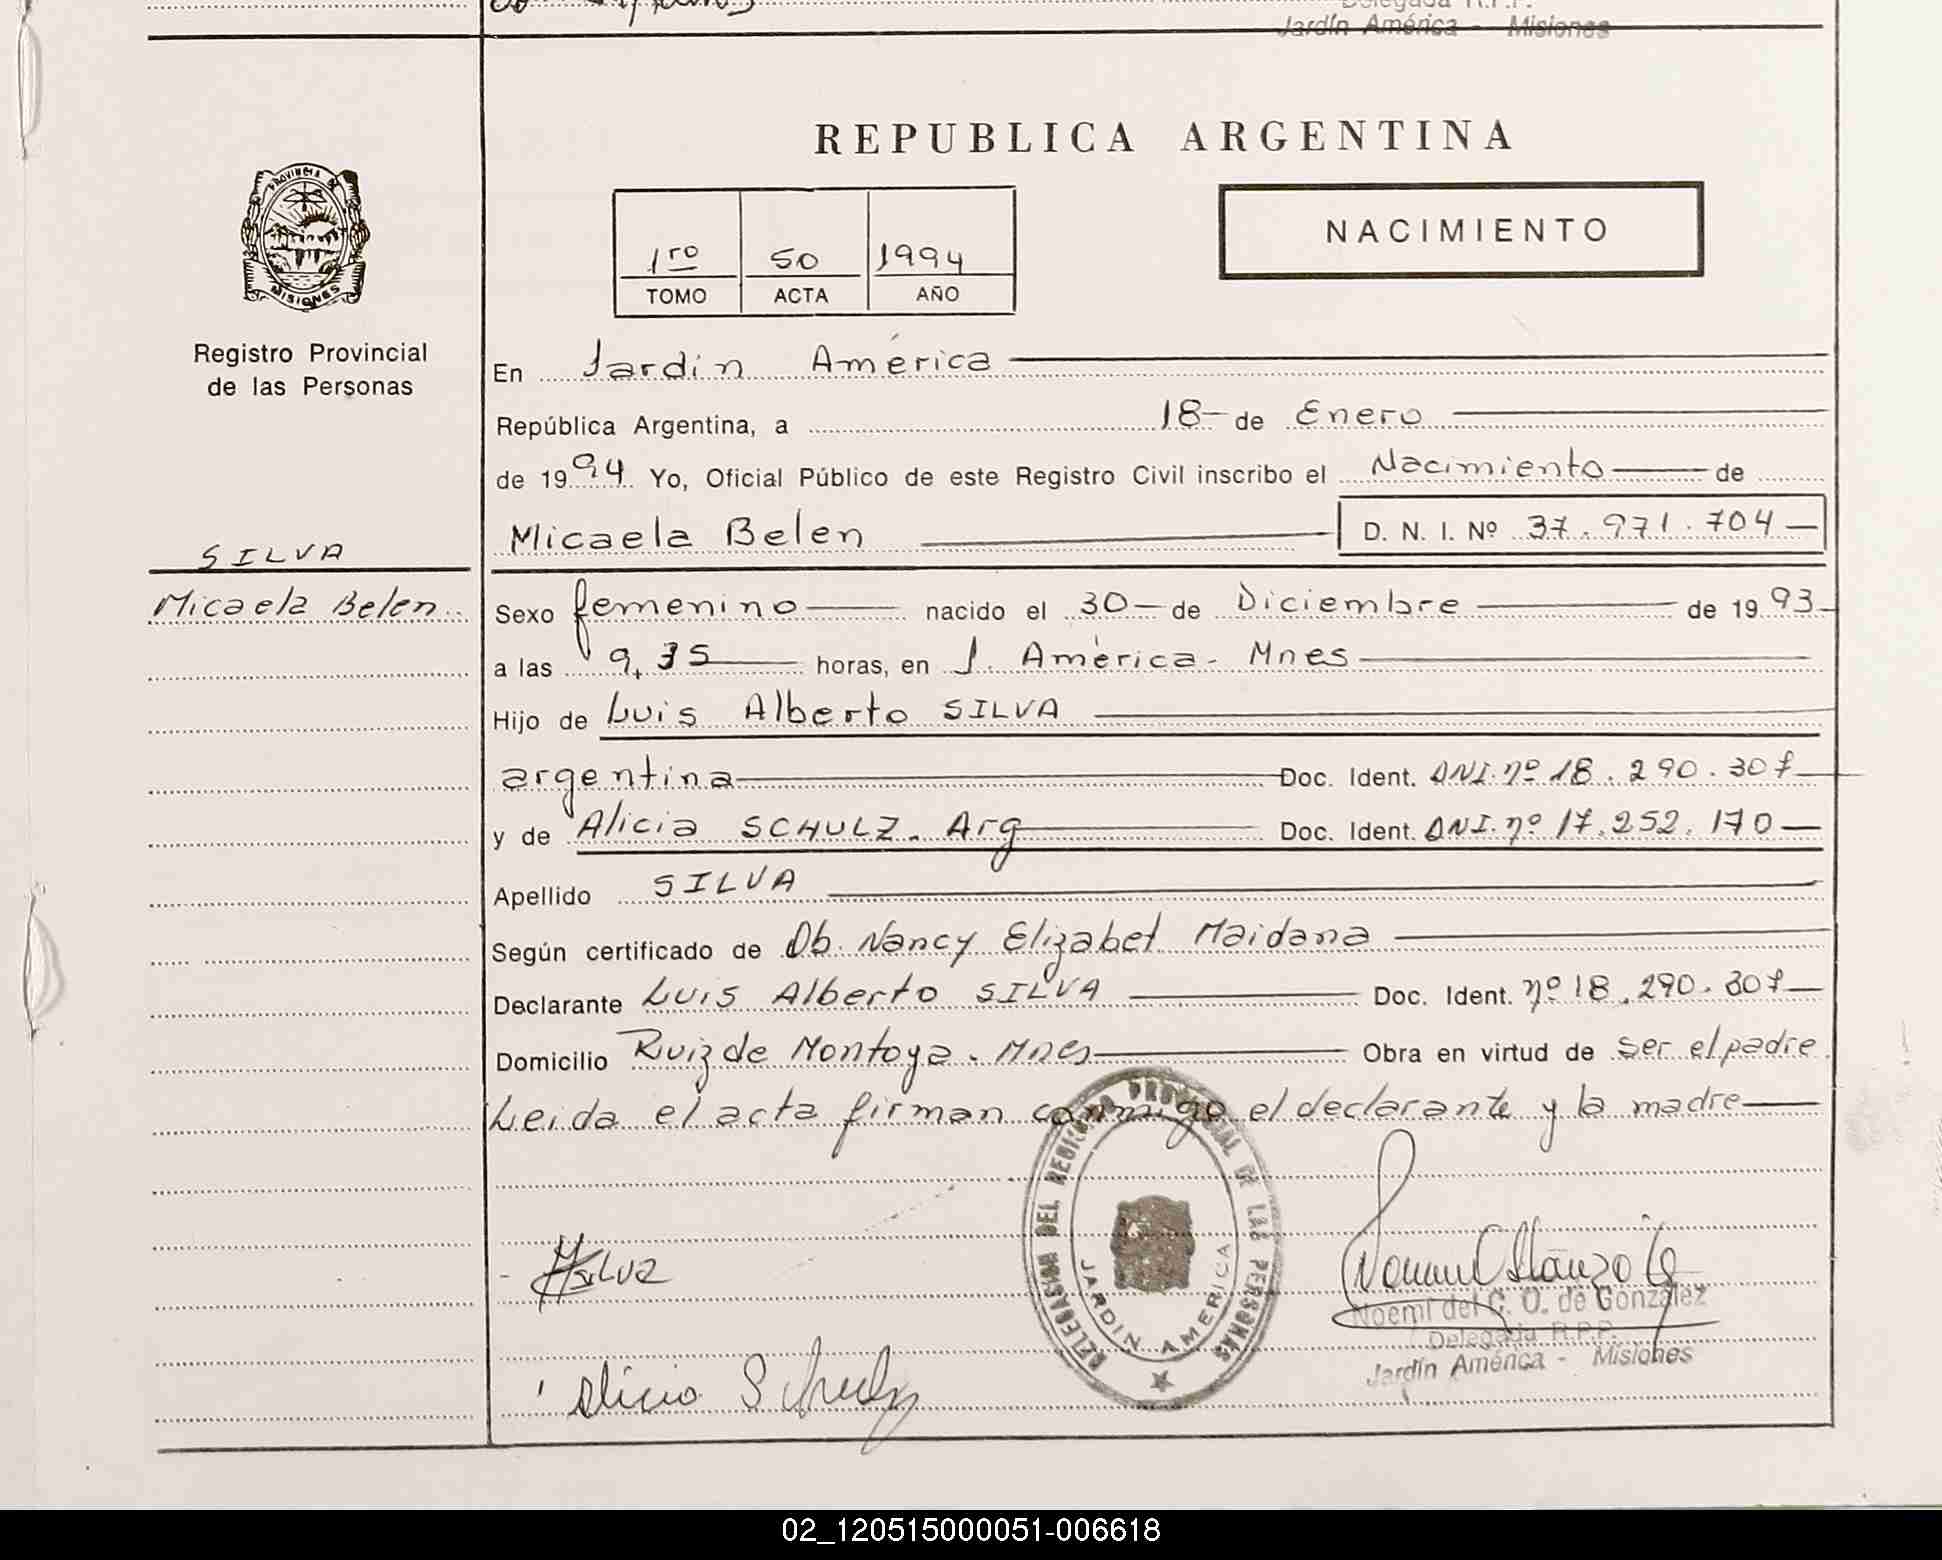 Delegada R.P.P.
Jardín América - Misiones
PROVINCIA DE
MISIONES
Registro Provincial
de las Personas
SILVA
Micaela Belen
REPUBLICA ARGENTINA
1ro 50 1994
TOMO ACTA AÑO
NACIMIENTO
En Jardín América
República Argentina, a 18 de Enero
de 1994 Yo, Oficial Público de este Registro Civil inscribo el Nacimiento de
Micaela Belen D. N. I. Nº 37.971.704
Sexo femenino nacido el 30 de Diciembre de 1993
a las 9,35 horas, en J. América - Mnes
Hijo de Luis Alberto SILVA
argentina Doc. Ident. DNI. nº 18.290.307
y de Alicia SCHULZ. Arg Doc. Ident. DNI. nº 17.252.170
Apellido SILVA
Según certificado de Ob. Nancy Elizabet Maidana
Declarante Luis Alberto SILVA Doc. Ident. nº 18.290.307
Domicilio Ruiz de Montoya. Mnes Obra en virtud de ser el padre
Leida el acta firman conmigo el declarante y la madre
DELEGACION DEL REGISTRO PROVINCIAL DE LAS PERSONAS
JARDIN AMERICA
Silva
Noemí del C. O. de González
Delegada R.P.P.
Jardín América - Misiones
Alicia Schulz
02_120515000051-006618